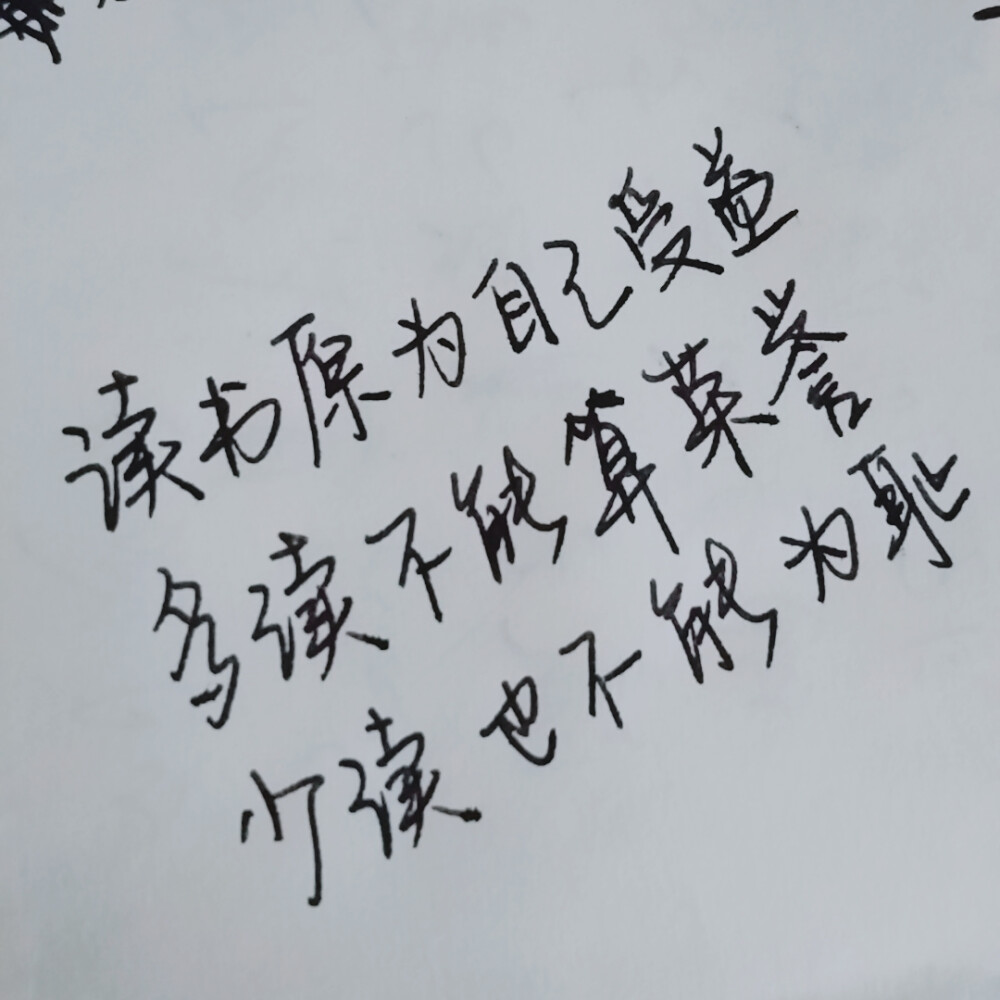 读书原为自己受益
多读不能算荣誉
少读也不能为耻